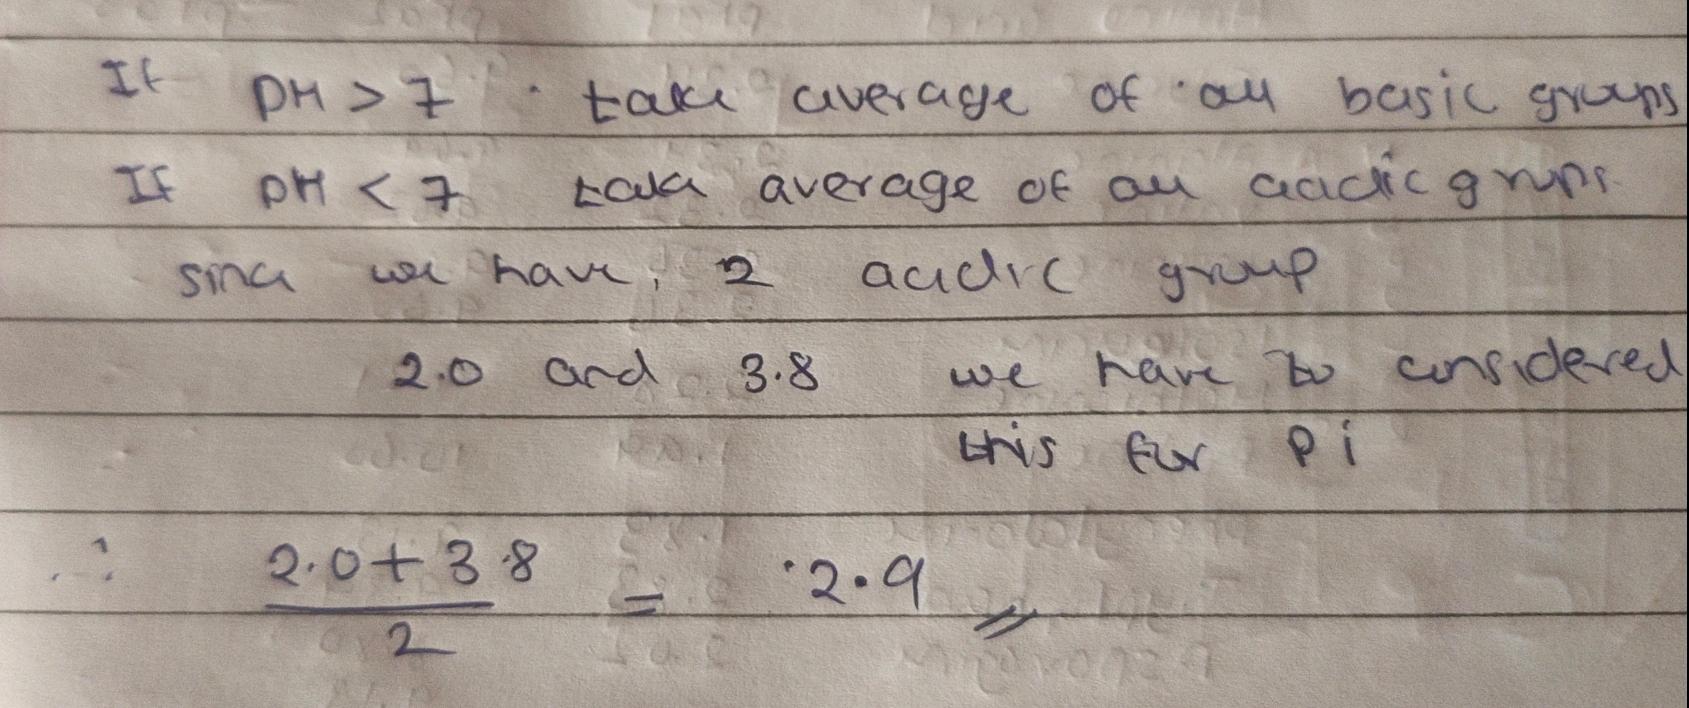 If PH > 7 take average of all basic groups
If PH < 7 take average of all acidic grups
since we have, 2 acidic group
2.0 and 3.8 we have to considered
this for Pi
∴ 2.0 + 3.8 / 2 = 2.9